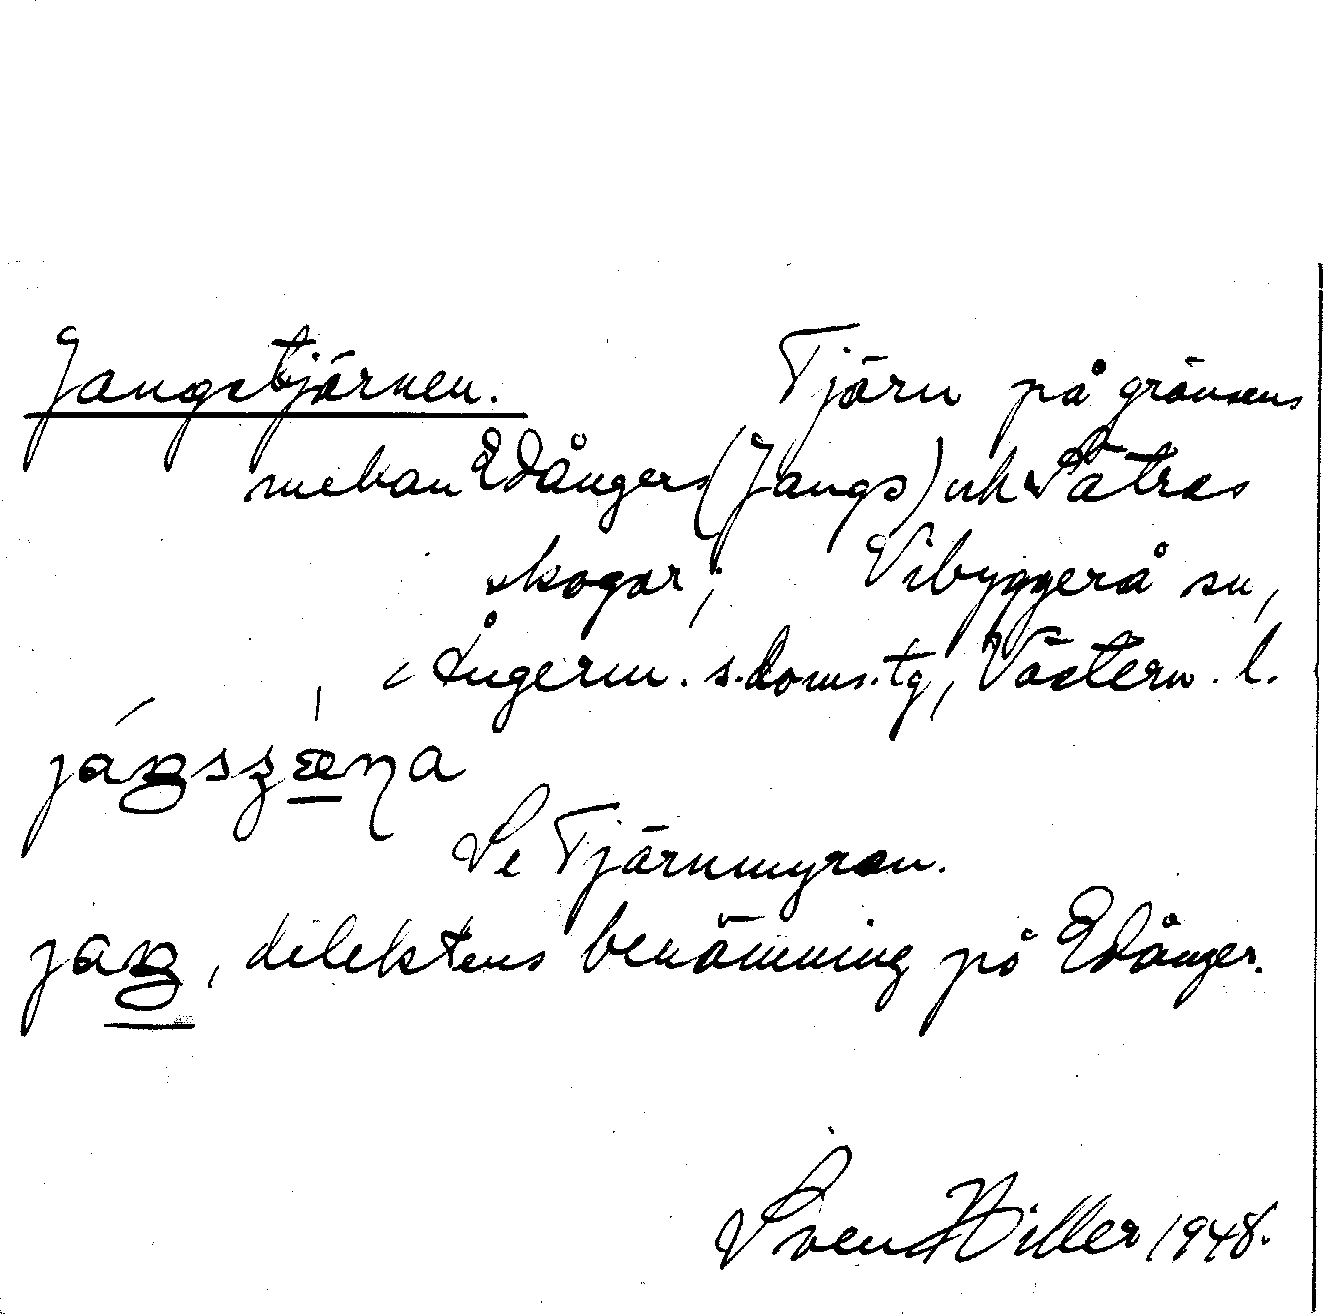 Jangstjärnen. Tjärn på gränsens
mellan Edångers (Jangs) och Sätras
skogar; Vibyggerå sn,
Ångerm. s. doms. tg, Västern. l.
Se Tjärnmyran.
jaŋ, dilektens benämning på Edånger.
Sven Hiller 1948.